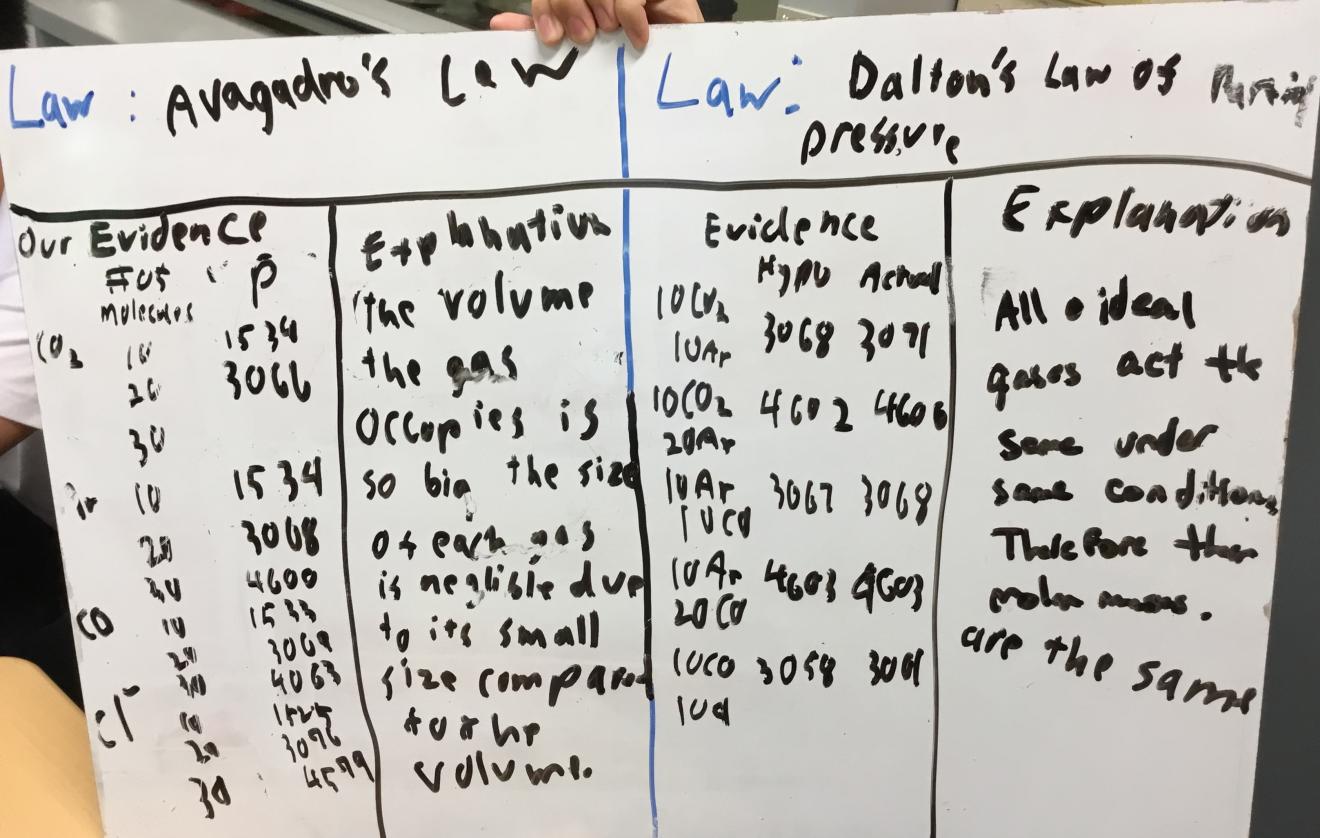 Law: Avagadro's Law
Our Evidence
# of P
molecules
CO2 10 1534
20 3066
30
Ar 10 1534
20 3068
30 4600
CO 10 1533
20
30 4063
Cl 10
20 3076
30 4579
Explanation
the volume
the gas
occopies is
so big the size
of each gas
is neglible due
to its small
size compared
to the
volume.
Law: Dalton's Law of Partial
pressure
Evidence
Hypo Actual
10CO2
10Ar 3068 3071
10CO2 4602 4606
20Ar
10Ar 3067 3068
10CO
10Ar 4603 4603
20CO
10CO 3058
10Cl
Explanation
All ideal
gases act the
same under
same conditions
Therefore
molar masses.
are the same